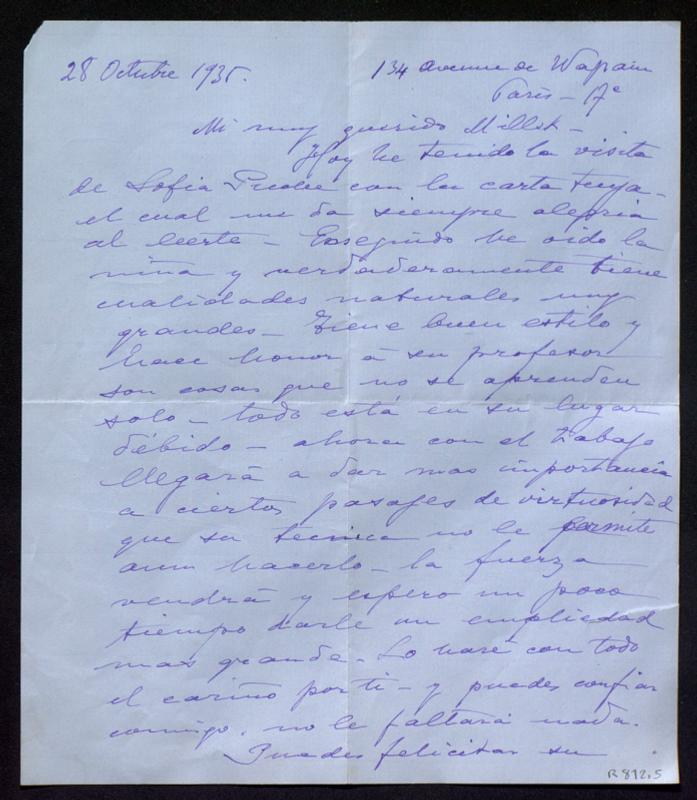 28 Octubre 1935.
134 Avenue de Wagram
Paris - 17e
Mi muy querido Millet -
Hoy he tenido la visita
de Sofia Puche con la carta tuya -
el cual me da siempre alegria
al leerte - Enseguido he oido la
niña y verdaderamente tiene
cualidades naturales muy
grandes - Tiene buen estilo y
hace honor á su profesor
son cosas que no se aprenden
solo - todo está en su lugar
débido - ahora con el trabajo
llegará a dar mas importancia
a ciertos pasajes de virtuosidad
que su tecnica no le permite
aun hacerlo - la fuerza
vendrá y espero un poco
tiempo darle un empliedad
mas grande. Lo haré con todo
el cariño por ti - y puedes confiar
comigo, no le faltará nada.
Puedes felicitar su
R 892,5